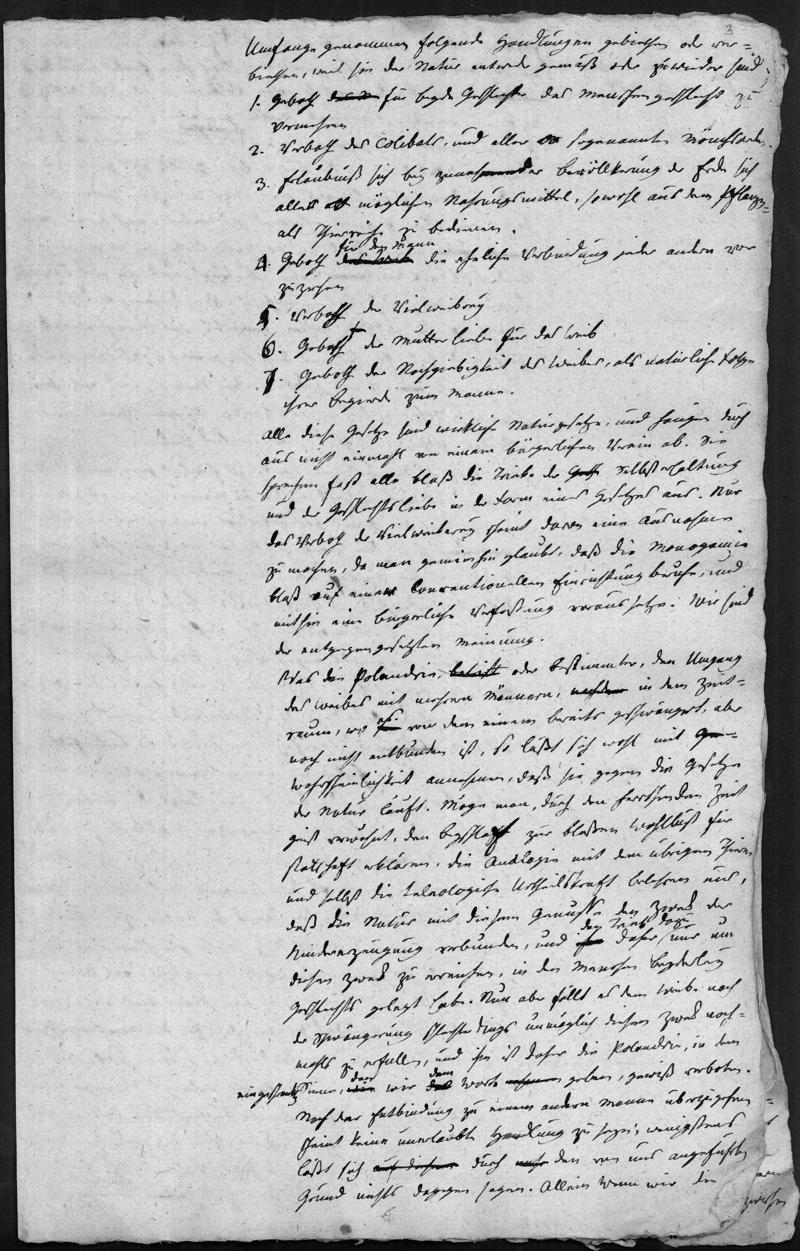 3
Umfange genommen folgende Handlungen gebiethen oder ver=
biethen, weil sie der Natur entweder gemäß oder zuwieder sind
1. Geboth das V für beyde Geschlechter das Menschengeschlecht zu
vermehren
2. Verboth des Cölibats, und aller sogenannten Mönchsorden.
3. Erlaubniß sich bey zunehmender Bevölkerung der Erde sich
aller möglichen Nahrungsmittel, sowohl aus dem Pflanzen=
als Thierreiche zu bedienen.
für den Mann
4. Geboth das Weib die eheliche Verbindung jeder andern vor
zuziehen
5. Verboth der Vielweiberey
6. Geboth der Mutterliebe für das Weib
7. Geboth der Nachgiebigkeit des Weibes, als natürliche Folge
ihrer Begierde zum Manne.
Alle diese Gesetze sind wirkliche Naturgesetze, und hangen durch
aus nicht einmahl von einem bürgerlichen Verein ab. Sie
sprechen fast alle bloß die Triebe der Selbsterhaltung
und der Geschlechtsliebe in der Form eines Gesetzes aus. Nur
das Verboth der Vielweiberey scheint davon eine Ausnahme
zu machen, da man gemeinhin glaubt, daß die Monogamie
bloß auf einer conventionellen Einrichtung beruhe, und
mithin eine bürgerliche Verfassung voraussetze. Wir sind
der entgegengesetzten Meinung.
Was die Polandrie, betrift oder bestimmter, den Umgang
des Weibes mit mehrern Männern, nachdem in dem Zeit=
raum, wo sie von dem einem bereits geschwängert, aber
noch nicht entbunden ist, so läßt sich wohl mit
Wahrscheinlichkeit annehmen, daß sie gegen die Gesetze
der Natur läuft. Möge man, durch den herrschenden Zeit
geist verwöhnt, den Beyschlaf zur bloßen Wohllust für
statthaft erklären, die Analogie mit den übrigen Thieren
und selbst die teleologische Urtheilskraft belehren uns,
daß die Natur mit diesem Genusse den Zweck der
den Trieb dazu
Kindererzeugung verbunden, und sie daher nur um
diesen Zweck zu erreichen, in den Menschen beyderley
Geschlechts gelegt habe. Nun aber fällt es dem Weibe nach
der Schwängerung schlechterdings unmöglich diesen Zweck noch=
mahls zu erfüllen, und ihr ist daher die Polandrie, in dem
eingeschränkten Sinne, den wir dem Worte geben, gewiß verboten.
Nach der Entbindung zu einem andern Manne überzugehen
scheint keine unerlaubte Handlung zu seyn; wenigstens
läßt sich auf diesem durch den von uns angeführten
Grund nichts dagegen sagen. Allein wenn wir die